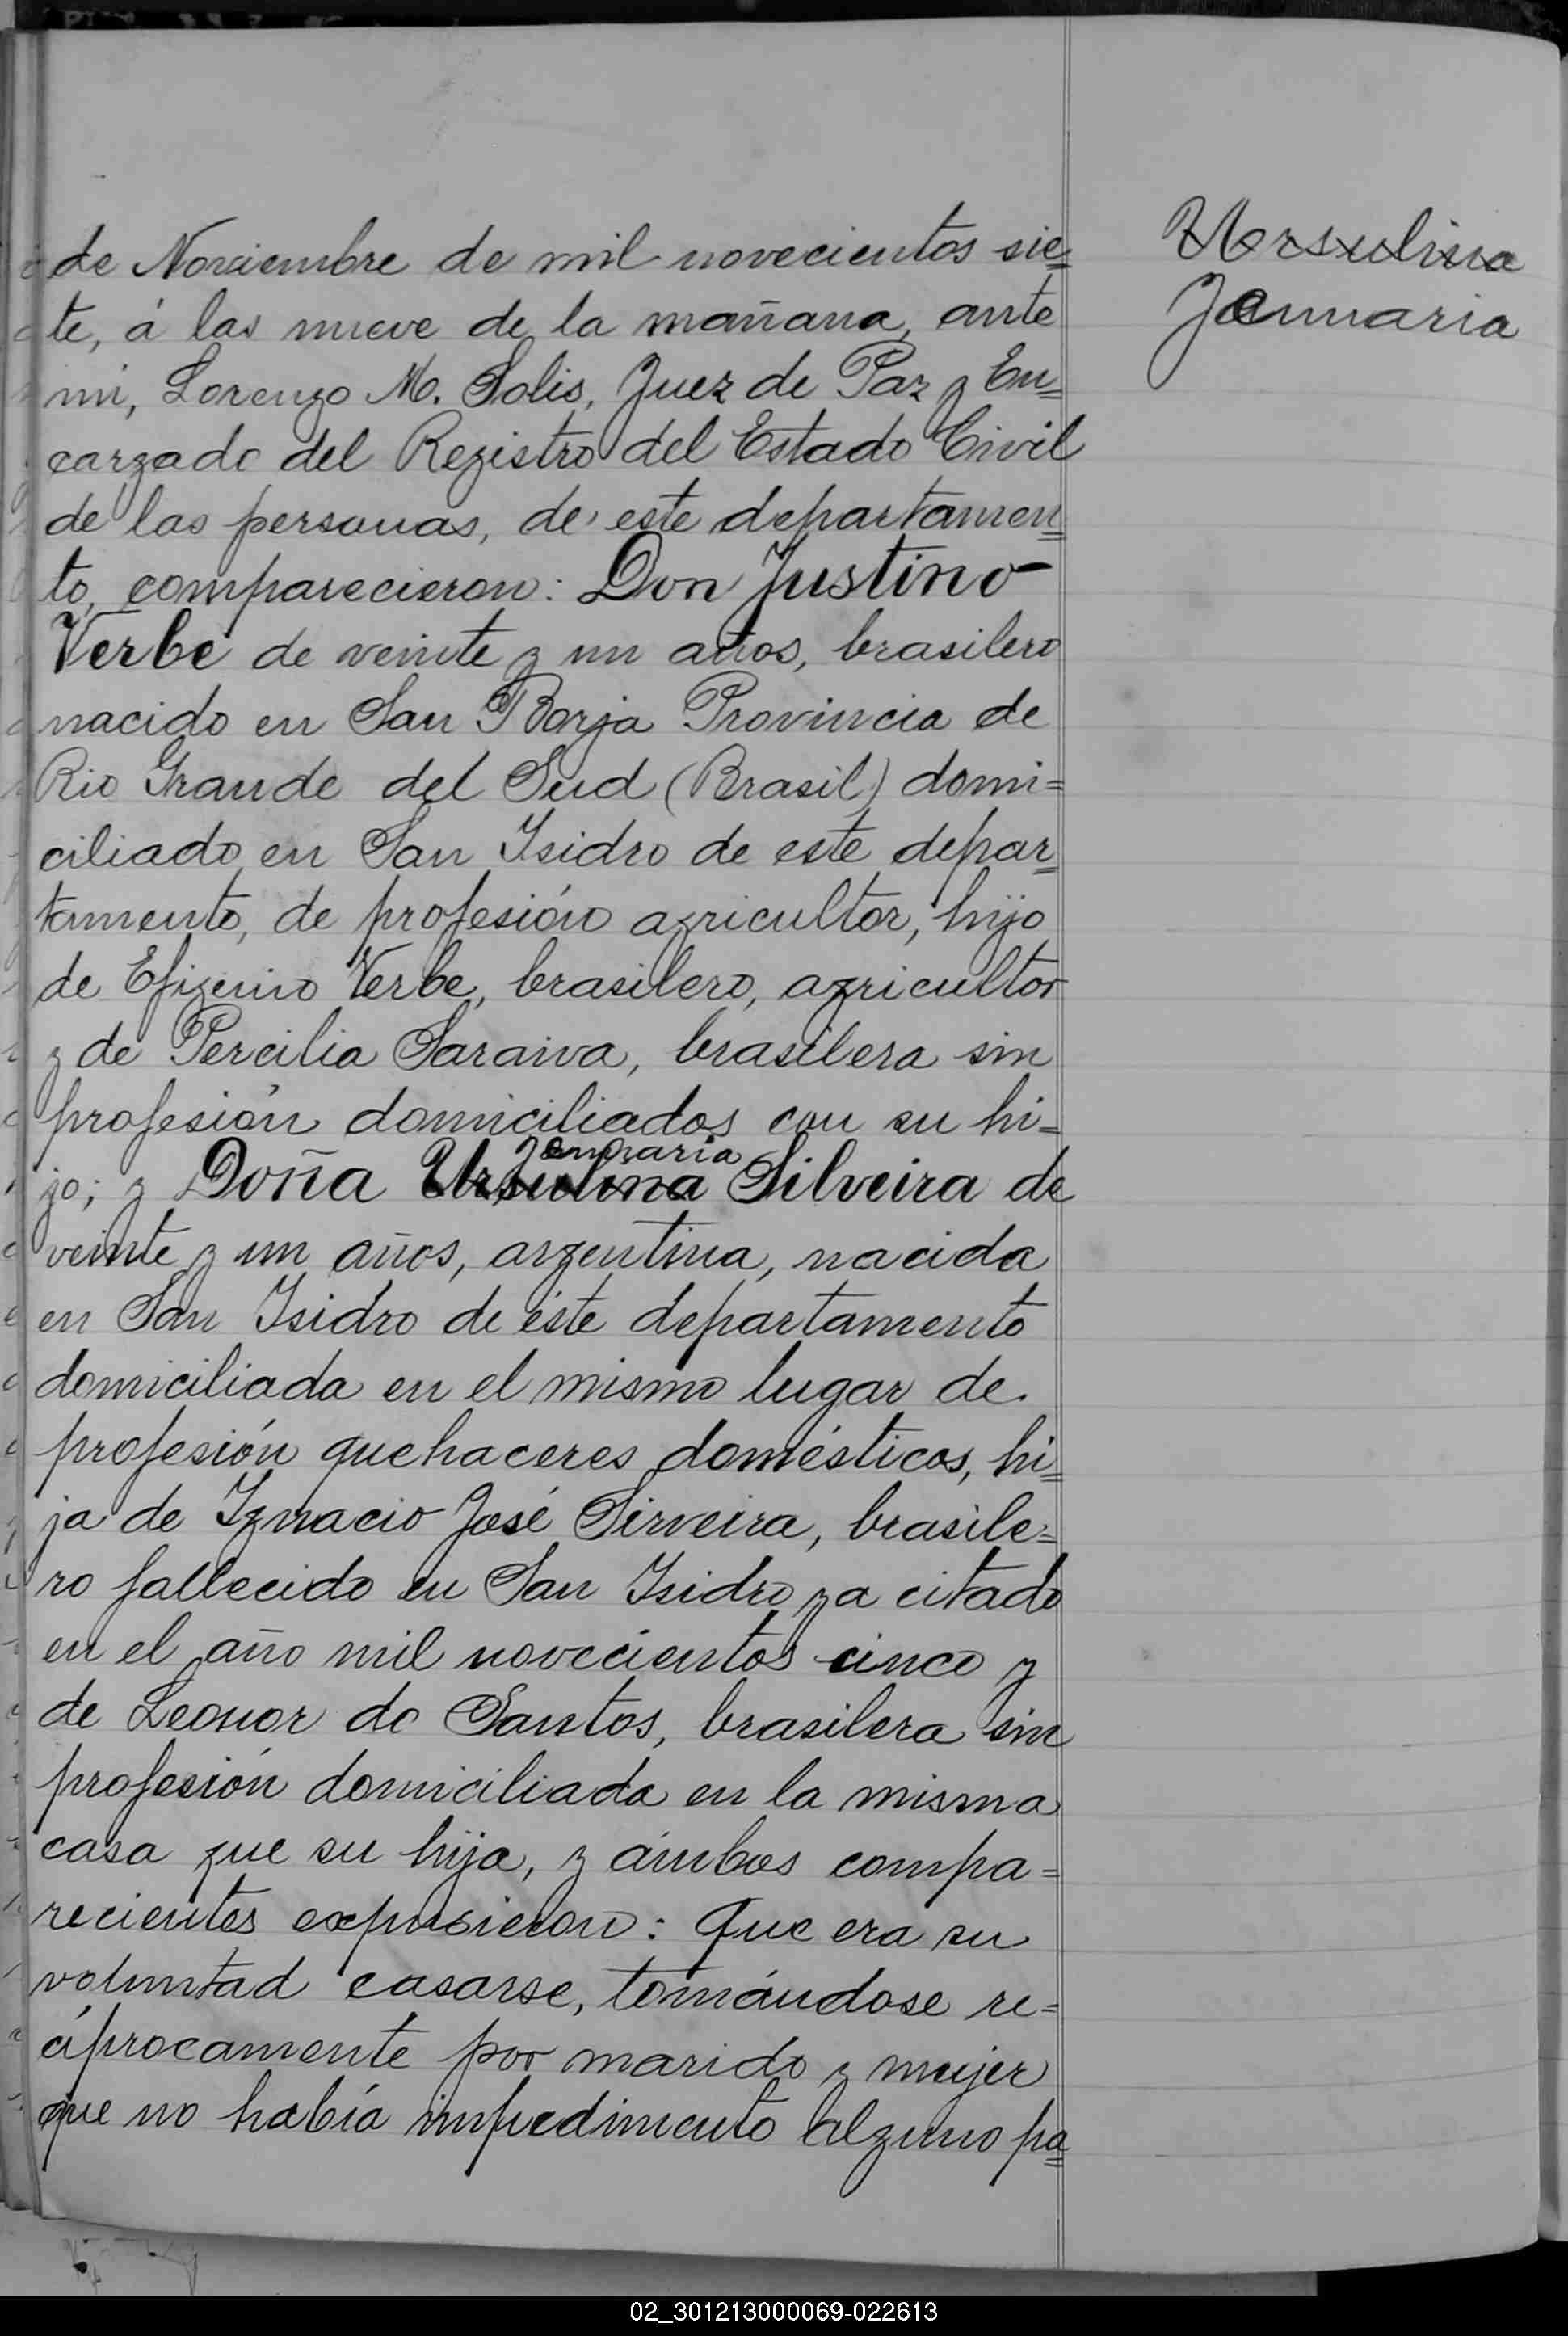 de Noviembre de mil novecientos sie=
te, á las nueve de la mañana, ante
mi, Lorenzo M. Solis, Juez de Paz y En=
cargado del Registro del Estado Civil
de las personas, de este departamen=
to, comparecieron: Don Justino
Verbe de veinte y un años, brasilero
nacido en San Borja Provincia de
Rio Grande del Sud (Brasil) domi=
ciliado en San Isidro de este depar=
tamento, de profesión agricultor, hijo
de Efigenio Verbe, brasilero, agricultor
y de Percilia Saraiva, brasilera sin
profesión domiciliados con su hi=
Januaria
jo; y Doña Ursulina Silveira de
veinte y un años, argentina, nacida
en San Isidro de éste departamento
domiciliada en el mismo lugar de
profesión quehaceres domésticos, hi=
ja de Ignacio José Sirveira, brasile=
ro fallecido en San Isidro ya citado
en el año mil novecientos cinco y
de Leonor do Santos, brasilera sin
profesión domiciliada en la misma
casa que su hija, y ámbos compa=
recientes expusieron: Que era su
voluntad casarse, tomándose re=
cíprocamente por marido y mujer
que no había impedimento alguno pa=
Ursulina
Januaria
02_301213000069-022613